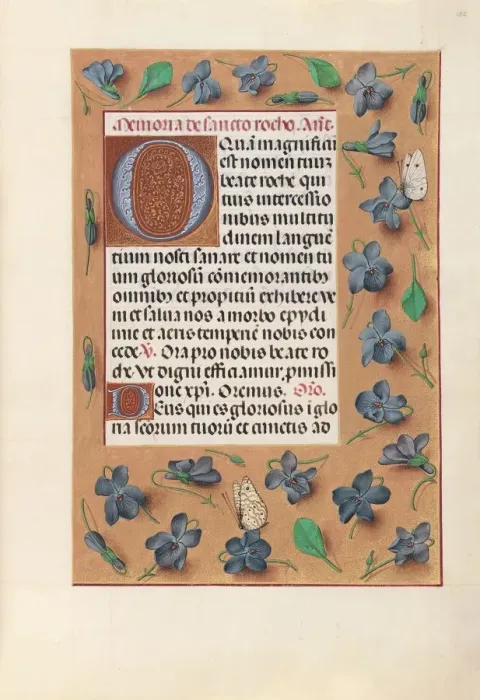 Memoria de sancto rocho. Añt.
Quã magnificũ
est nomen tuũ
beate roche qui
tuis intercessio
nibus multitu
dinem languẽ
tium nosti sanare et nomen tu
um gloriosũ cõmemorantibꝫ
omnibꝫ et propiciũ exhibere ve
ni et salua nos a morbo epydi
mie et aeris temperiẽ nobis con
cede ℣. Ora pro nobis beate ro
che. Vt digni efficiamur, pmissi
onc xp̃i. Oremus. Oro.
Deus qui es gloriosus ĩ glo
ria scorum tuorũ et cunctis ad